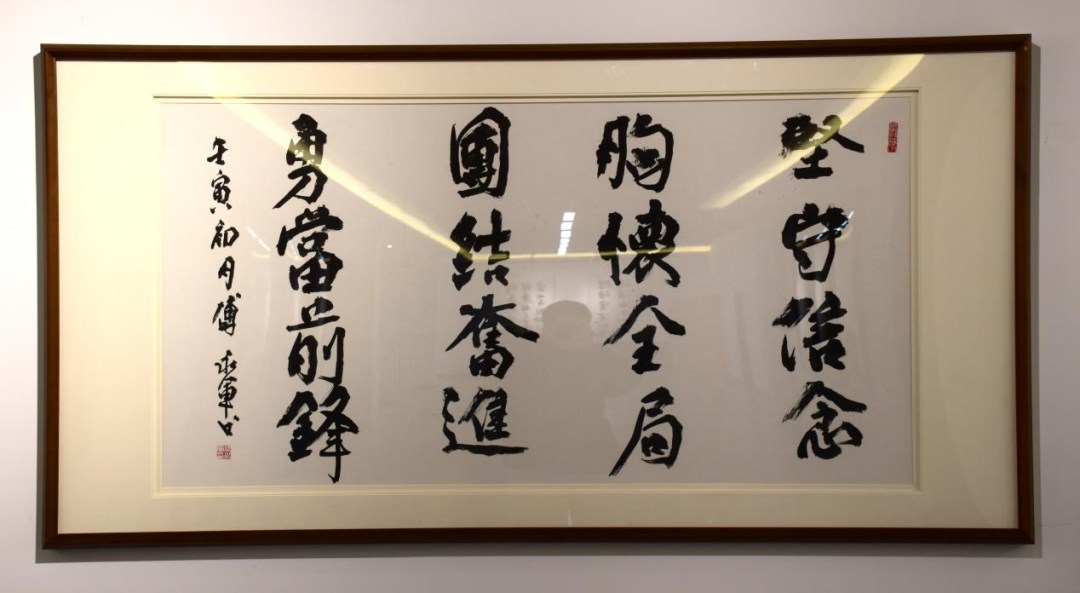 堅守信念
胸懷全局
團結奮進
勇當前鋒
壬寅初月傅永軍書